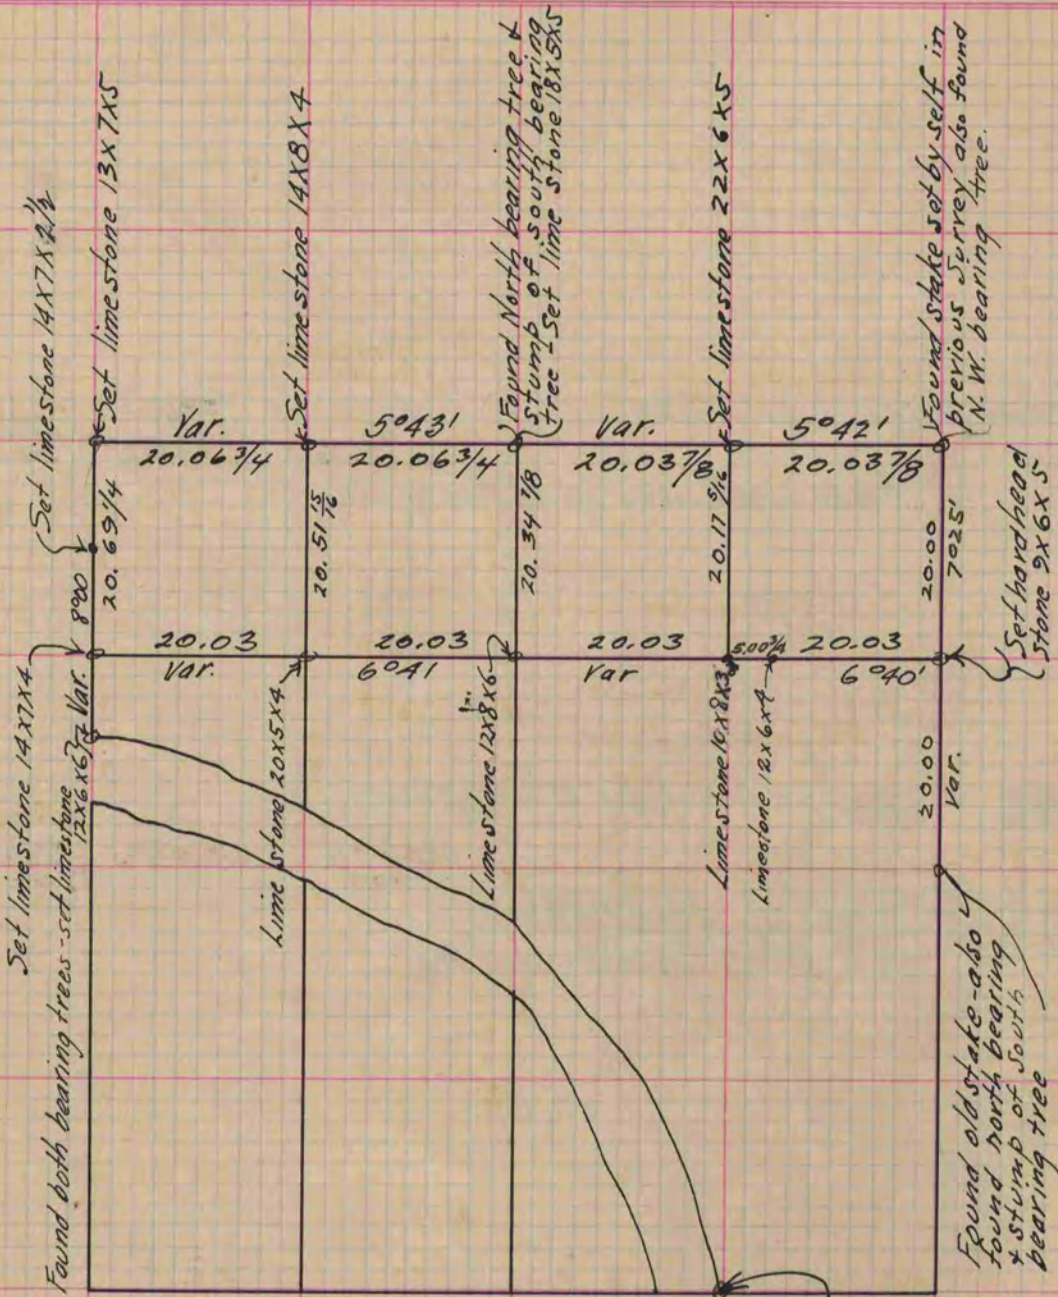 Set limestone 14X7X2½
Set limestone 13X7X5
Set limestone 14X8X4
Found North bearing tree &
stump of south bearing
tree - Set lime stone 18X5X5
Set limestone 22X6X5
Found stake set by self in
previous Survey also found
N.W. bearing tree.
Var.
20.06 3/4
5°43'
20.06 3/4
Var.
20.03 7/8
5°42'
20.03 7/8
8°00
20.69 1/4
20.51 15/16
20.34 7/8
20.17 5/16
20.00
7°25'
Set limestone 14X7X4
Var.
20.03
Var.
20.03
6°41
20.03
Var
5.00 3/4
20.03
6°40'
Set hardhead
stone 9X6X5
Found both bearing trees - set limestone
12X6X6
Lime stone 20X5X4
Limestone 12X8X6
Limestone 10X8X3
Limestone 12X6X4
20.00
Var.
Found old stake - also
found north bearing
& stump of South
bearing tree